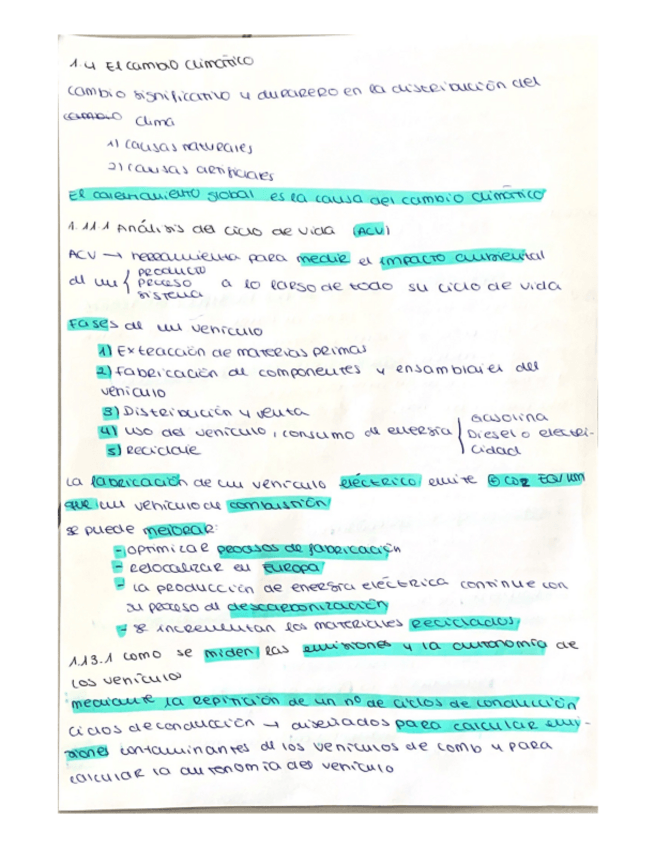 1.4 El cambio climático
cambio significativo y duradero en la distribución del
cambio clima
1) causas naturales
2) causas artificiales
El calentamiento global es la causa del cambio climático
1.11.1 Análisis del ciclo de vida (ACV)
ACV → herramienta para medir el impacto ambiental
de un { producto
proceso a lo largo de todo su ciclo de vida
sistema
Fases de un vehículo
1) Extracción de materias primas
2) Fabricación de componentes y ensamblajes del
vehículo
3) Distribución y venta
4) uso del vehículo, consumo de energía | Gasolina
Diesel o electri-
cidad
5) Reciclaje
La fabricación de un vehículo eléctrico emite CO2 EQ/KM
que un vehículo de combustión
se puede mejorar:
- optimizar procesos de fabricación
- relocalizar en Europa
- la producción de energía eléctrica continue con
su proceso de descarbonización
- se incrementan los materiales reciclados
1.13.1 como se miden las emisiones y la autonomía de
los vehículos
mediante la repitición de un nº de ciclos de conducción
ciclos de conducción → diseñados para calcular emi-
siones contaminantes de los vehículos de comb y para
calcular la autonomía del vehículo